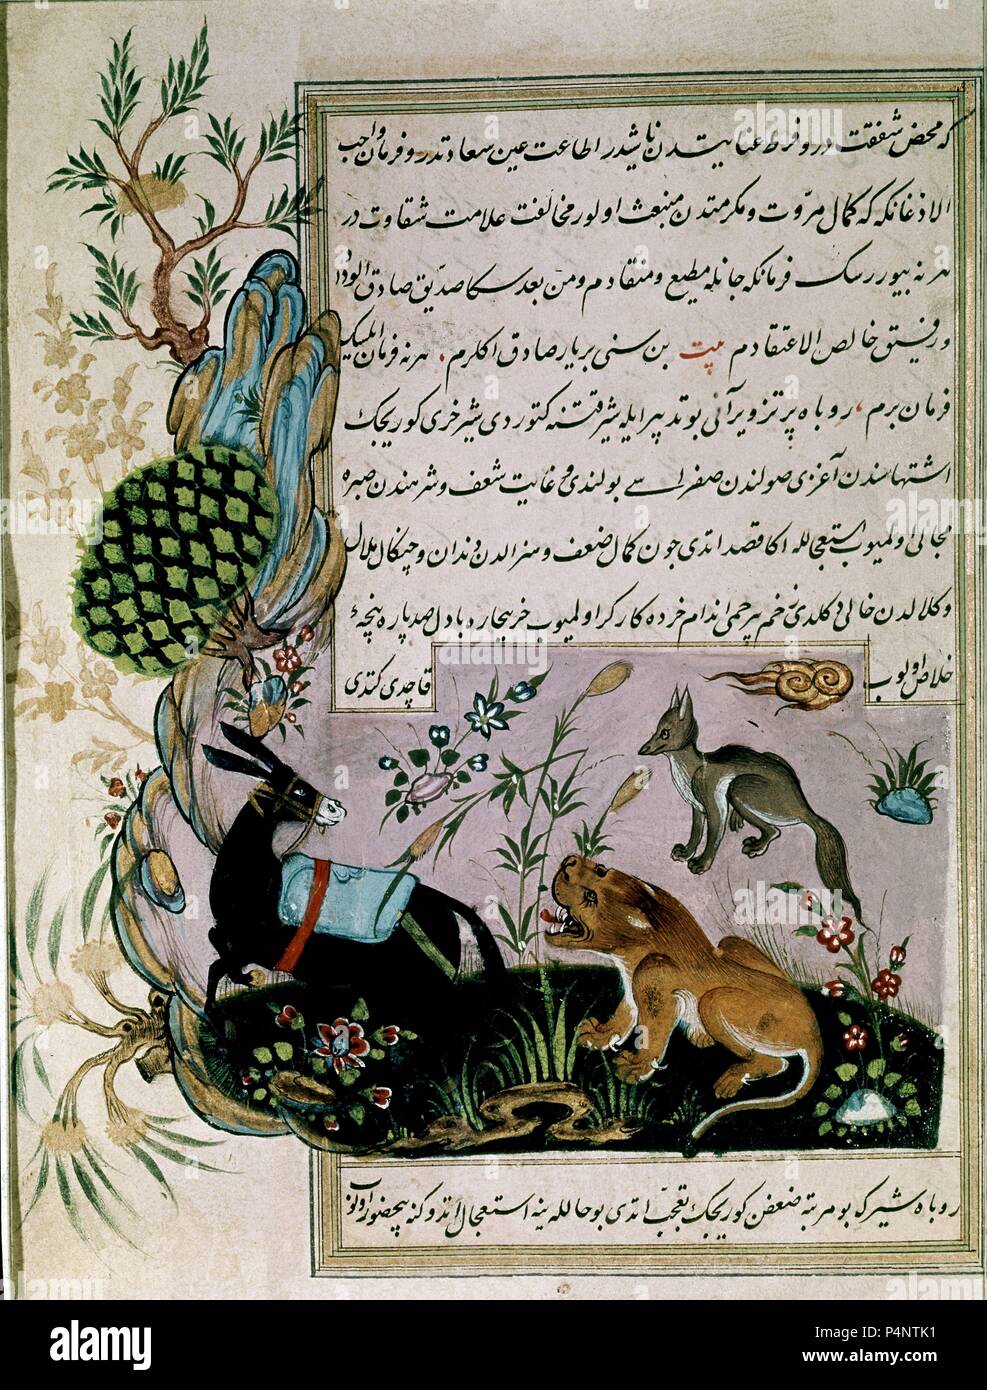 که محض شفقتدر و فرط عنایتدن ناشیدر اطاعت عین سعادتدر و فرمان واجب
الاذعانکه که کمال مروّت و مکرمتدن منبعث اولور مخالفت علامت شقاوت در
هر نه بیوررسک فرمانکه جانله مطیع و منقادم و من بعد سکا صدیق صادق الوداد
و رفیق خالص الاعتقادم بیت بن سنی بر یار صادق اکلرم هر نه فرمان ایلسک
فرمان برم روباه پر تزویر آنی بو تدبیر ایله شیر قتنه کتوردی شیر خری کوریجک
اشتهاسندن آغزی صولندن صفراسی بولندی غایت ضعف و شرهندن صبره
مجالی اولمیوب استعجالله اکا قصد ایتدی چون کمال ضعف و هزالدن دندان و چنکال ملال
و کلالدن خالی دکلدی زخم بر حمی اندام خرده کارکر اولمیوب خر بیچاره با دل صد پاره پنجهٔ
خلاص اولوب قاچدی کتدی
روباه شیرک بو مرتبه ضعفن کوریجک تعجب ایتدی بو حالله ینه استعجال ایدوکنه
alamy
a
alamy stock photo
P4NTK1
www.alamy.com